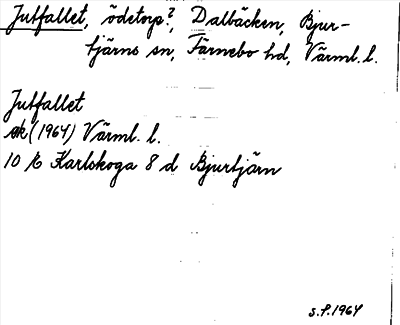 Jutfallet, ödetorp?, Dalbäcken, Bjur-
tjärns sn, Färnebo hd, Värml. l.
Jutfallet
ek (1964) Värml. l.
10 E Karlskoga 8 d Bjurtjärn
S.F. 1964